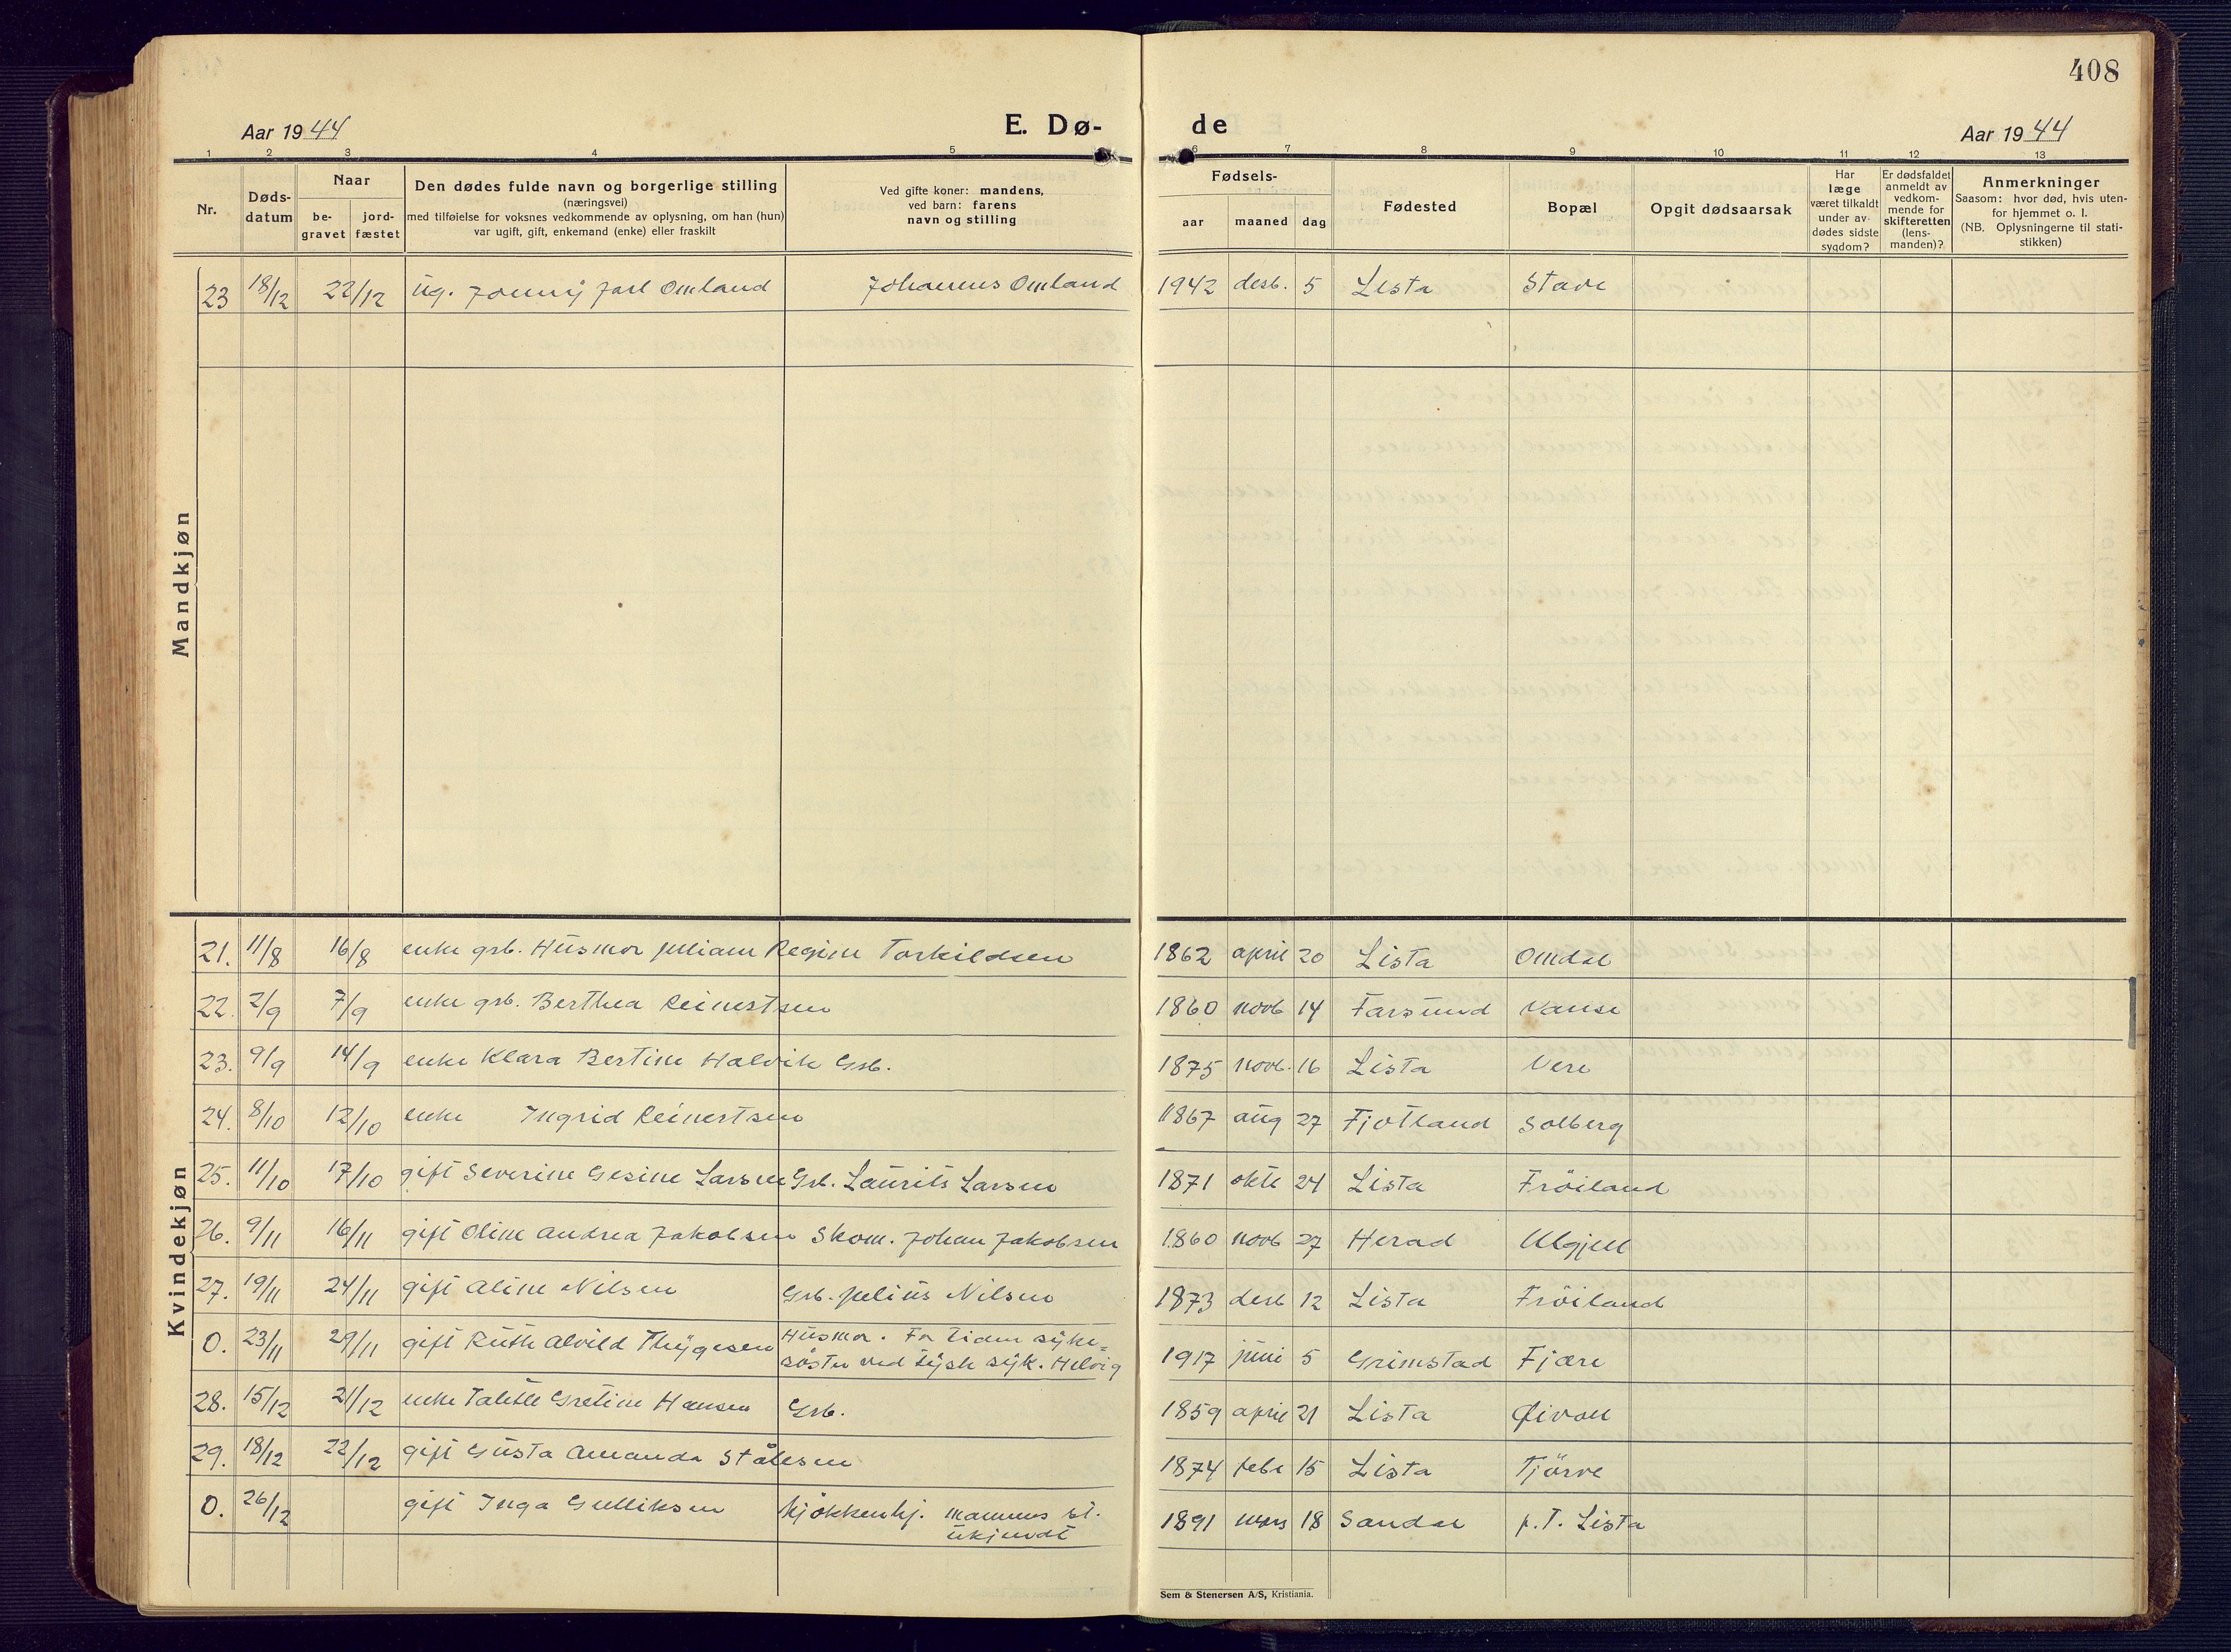 408
Aar 1944 E. Dø- de Aar 1944
1 2 3 4 5 6 7 8 9 10 11 12 13
Nr.
Døds-
datum
Naar
be-
gravet
jord-
fæstet
Den dødes fulde navn og borgerlige stilling
(næringsvei)
med tilføielse for voksnes vedkommende av oplysning, om han (hun)
var ugift, gift, enkemand (enke) eller fraskilt
Ved gifte koner: mandens,
ved barn: farens
navn og stilling
Fødsels-
aar maaned dag
Fødested
Bopæl
Opgit dødsaarsak
Har
læge
været tilkaldt
under av-
dødes sidste
sygdom?
Er dødsfaldet
anmeldt av
vedkom-
mende for
skifteretten
(lens-
manden)?
Anmerkninger
Saasom: hvor død, hvis uten-
for hjemmet o. l.
(NB. Oplysningerne til stati-
stikken)
Mandkjøn
23 18/12 22/12 ug. Jonny Jarl Omland Johannes Omland 1942 desb. 5 Lista Stave
Kvindekjøn
21. 11/8 16/8 enke grb. Husmor Juliane Regine Torkildsen 1862 april 20 Lista Omdal
22. 2/9 7/9 enke grb. Berthea Reinertsen 1860 novb 14 Farsund Vanse
23. 9/9 14/9 enke Klara Bertine Halvik Grb. 1875 novb. 16 Lista Vere
24. 8/10 12/10 enke Ingrid Reinertsen 1867 aug 27 Fjotland Solberg
25. 11/10 17/10 gift Severine Gesine Larsen Grb. Laurits Larsen 1871 oktb 24 Lista Fröiland
26. 9/11 16/11 gift Oline Andrea Jakobsen Skom. Johan Jakobsen 1860 novb 27 Herad Ulgjell
27. 19/11 24/11 gift Aline Nilsen Grb. Julius Nilsen 1873 desb 12 Lista Fröiland
0. 23/11 29/11 gift Ruth Alvild Thygesen Husmor. For tiden syke=
söster ved tysk syk. Helvig 1917 juni 5 Grimstad Fjære
28. 15/12 21/12 enke Talette Gretine Hansen Grb. 1859 april 21 Lista Øivoll
29. 18/12 22/12 gift Gusta Amanda Stålesen 1874 febr 15 Lista Tjörve
0. 26/12 gift Inga Gulliksen kjökkenhj. mannens st.
ukjendt 1891 mars 18 Sandar p.t. Lista
Sem & Stenersen A/S, Kristiania.